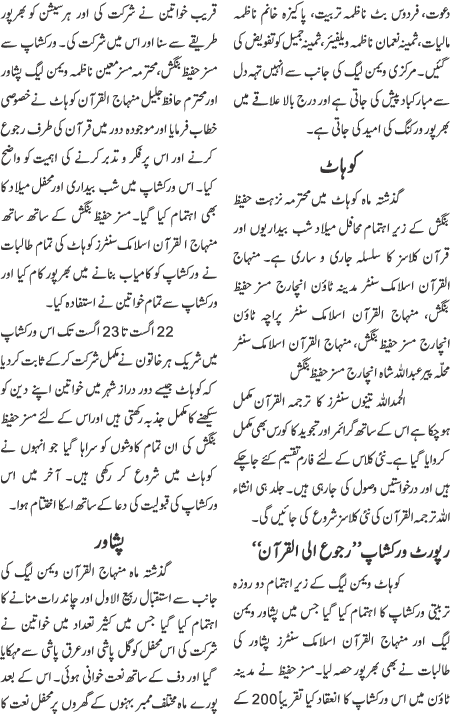 دعوت، فردوس بٹ ناظمہ تربیت، پاکیزہ خانم ناظمہ
مالیات، ثمینہ نعمان ناظمہ ویلفیئر، ثمینہ جمیل کو تفویض کی
گئیں۔ مرکزی ویمن لیگ کی جانب سے انہیں تہہ دل
سے مبارکباد پیش کی جاتی ہے اور درج بالا علاقے میں
بھرپور ورکنگ کی امید کی جاتی ہے۔
کوہاٹ
گذشتہ ماہ کوہاٹ میں محترمہ نزہت حفیظ
بنگش کے زیر اہتمام محافل میلاد شب بیداریوں اور
قرآن کلاسز کا سلسلہ جاری و ساری ہے۔ منہاج
القرآن اسلامک سنٹر مدینہ ٹاؤن انچارج مسز حفیظ
بنگش، منہاج القرآن اسلامک سنٹر پراچہ ٹاؤن
انچارج مسز حفیظ بنگش، منہاج القرآن اسلامک سنٹر
محلّہ پیر عبداللہ شاہ انچارج مسز حفیظ بنگش
الحمدللہ تینوں سنٹرز کا ترجمہ القرآن مکمل
ہوچکا ہے اس کے ساتھ گرائمر اور تجوید کا کورس بھی مکمل
کروایا گیا ہے۔ نئی کلاس کے لئے فارم تقسیم کئے جاچکے
ہیں اور درخواستیں وصول کی جارہی ہیں۔ جلد ہی انشاء
اللہ ترجمہ القرآن کی نئی کلاسز شروع کی جائیں گی۔
رپورٹ ورکشاپ ’’رجوع الی القرآن‘‘
کوہاٹ ویمن لیگ کے زیر اہتمام دو روزہ
تربیتی ورکشاپ کا اہتمام کیا گیا جس میں پشاور ویمن
لیگ اور منہاج القرآن اسلامک سنٹرز پشاور کی
طالبات نے بھی بھرپور حصہ لیا۔ مسز حفیظ نے مدینہ
ٹاؤن میں اس ورکشاپ کا انعقاد کیا تقریباً 200 کے
قریب خواتین نے شرکت کی اور ہر سیشن کو بھرپور
طریقے سے سنا اور اس میں شرکت کی۔ ورکشاپ سے
مسز حفیظ بنگش، محترمہ مسز معین ناظمہ ویمن لیگ پشاور
اور محترم حافظ جلیل منہاج القرآن کوہاٹ نے خصوصی
خطاب فرمایا اور موجودہ دور میں قرآن کی طرف رجوع
کرنے اور اس پر فکر و تدبر کرنے کی اہمیت کو واضح
کیا۔ اس ورکشاپ میں شب بیداری اور محفل میلاد کا
بھی اہتمام کیا گیا۔ مسز حفیظ بنگش کے ساتھ ساتھ
منہاج القرآن اسلامک سنٹرز کوہاٹ کی تمام طالبات
نے ورکشاپ کو کامیاب بنانے میں بھرپور کام کیا اور
ورکشاپ سے تمام خواتین نے استفادہ کیا۔
22 اگست تا 23 اگست تک اس ورکشاپ
میں شریک ہر خاتون نے مکمل شرکت کرکے ثابت کردیا
کہ کوہاٹ جیسے دور دراز شہر میں خواتین اپنے دین کو
سیکھنے کا مکمل جذبہ رکھتی ہیں اور اس کے لئے مسز حفیظ
بنگش کی ان تمام کاوشوں کو سراہا گیا جو انہوں نے
کوہاٹ میں شروع کر رکھی ہیں۔ آخر میں اس
ورکشاپ کی قبولیت کی دعا کے ساتھ اسکا اختتام ہوا۔
پشاور
گذشتہ ماہ منہاج القرآن ویمن لیگ کی
جانب سے استقبال ربیع الاول اور چاند رات منانے کا
اہتمام کیا گیا جس میں کثیر تعداد میں خواتین نے
شرکت کی اس محفل کو گل پاشی اور عرق پاشی سے مہکایا
گیا اور دف کے ساتھ نعت خوانی ہوئی۔ اس کے بعد
پورے ماہ مختلف ممبر بہنوں کے گھروں پر محفل نعت کا